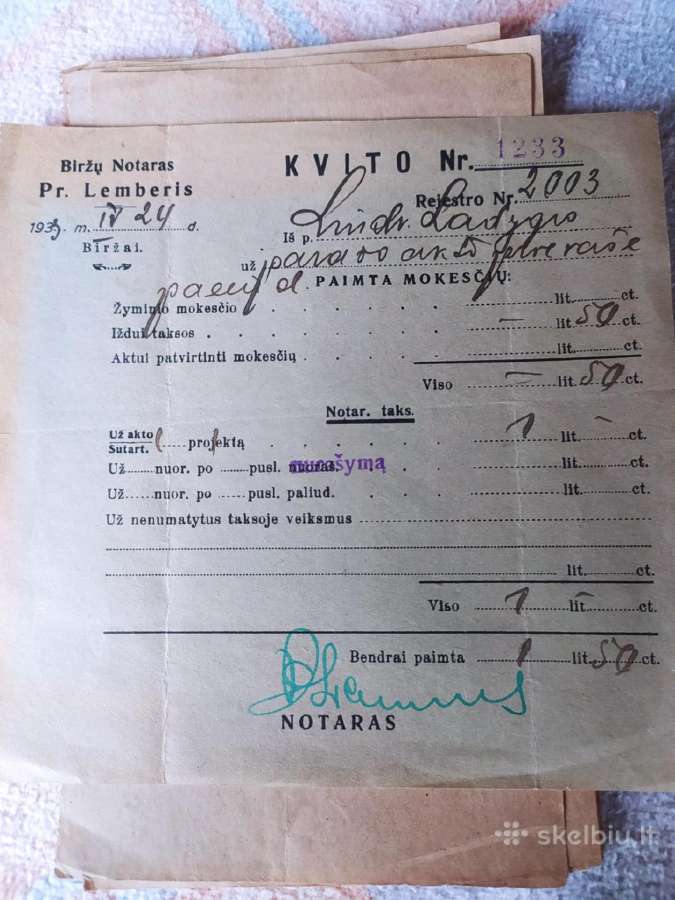 Biržų Notaras
Pr. Lemberis
KVITO Nr. 1233
Rejestro Nr. 2003
193 m. IV 24 d.
Biržai.
Iš p.
už
PAIMTA MOKESČIŲ:
Žyminio mokesčio lit. ct.
Iždui taksos lit. 50 ct.
Aktui patvirtinti mokesčių lit. ct.
Viso — lit. 50 ct.
Notar. taks.
Už akto
Sutart. projektą 1 lit. – ct.
Už nuor. po pusl. nuoras. lit. ct.
Už nuor. po pusl. paliud. lit. ct.
Už nenumatytus taksoje veiksmus
lit. ct.
Viso 1 lit. – ct.
Bendrai paimta 1 lit. 50 ct.
NOTARAS
skelbiu.lt